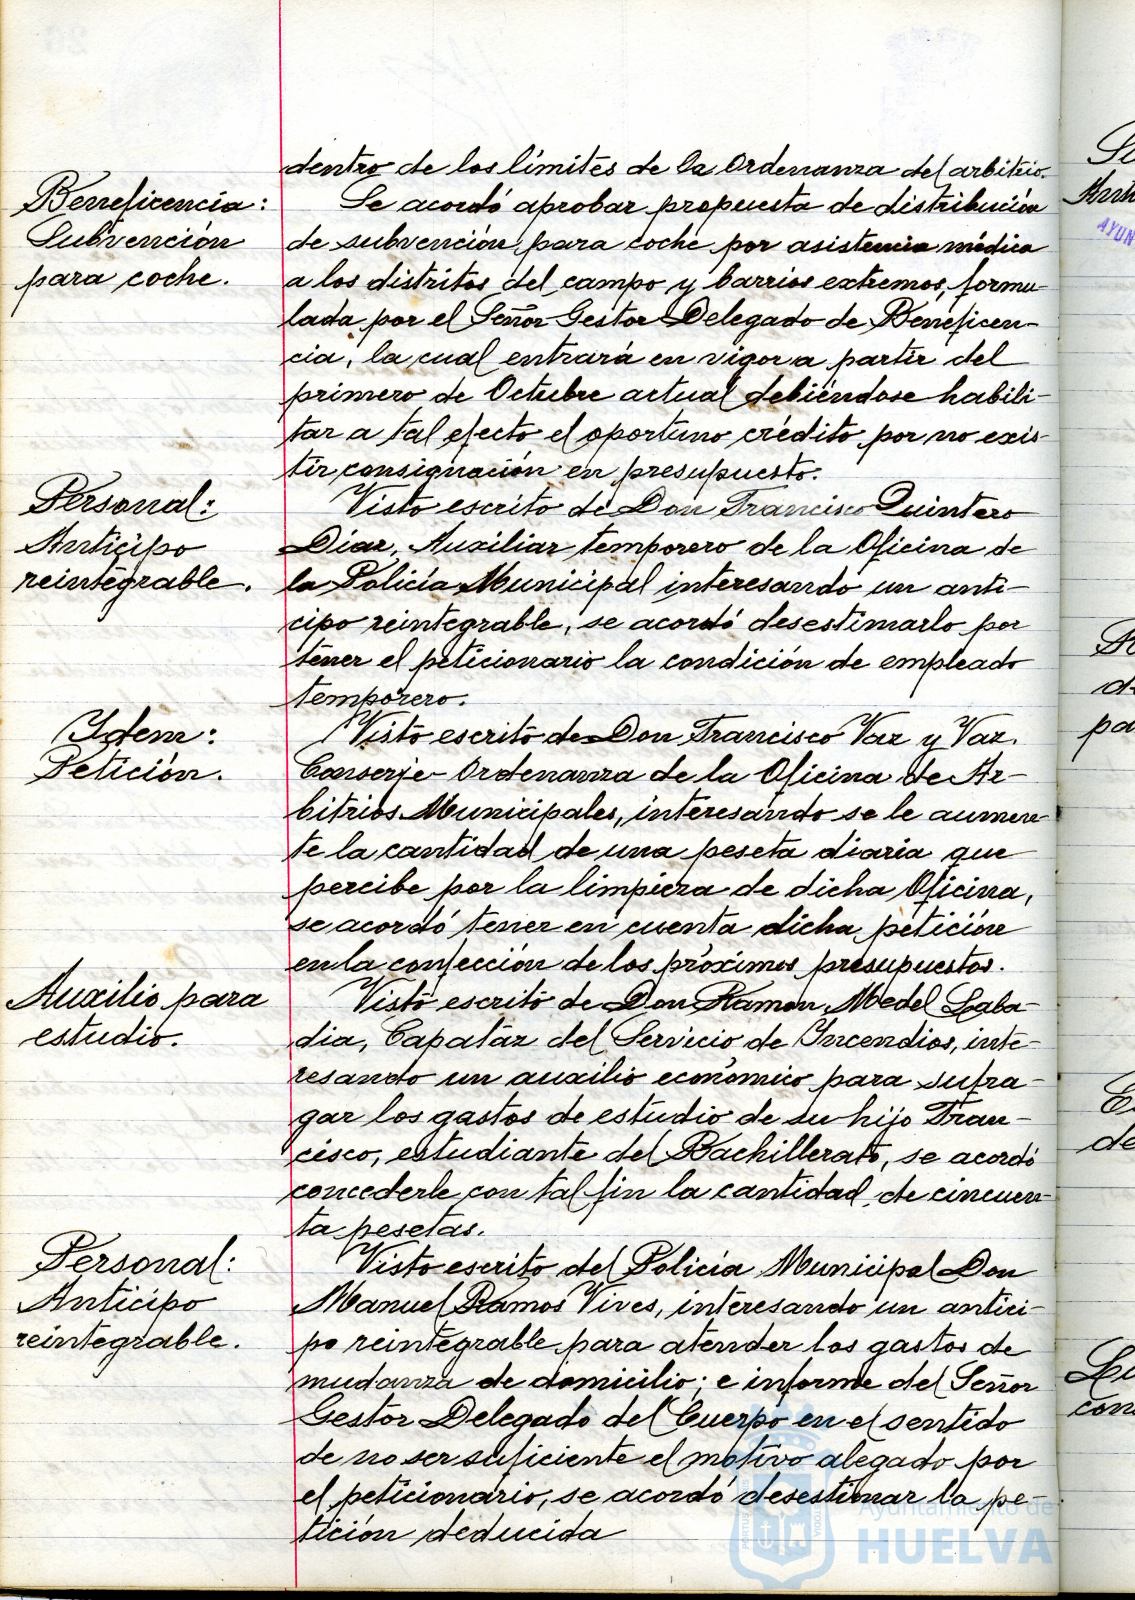 dentro de los límites de la Ordenanza del arbitrio.
Beneficencia:
Subvención
para coche.
Se acordó aprobar propuesta de distribución
de subvención para coche por asistencia médica
a los distritos del campo y barrios extremos, formu-
lada por el Señor Gestor Delegado de Beneficen-
cia, la cual entrará en vigor a partir del
primero de Octubre actual debiéndose habili-
tar a tal efecto el oportuno crédito por no exis-
tir consignación en presupuesto.
Personal:
Anticipo
reintegrable.
Visto escrito de Don Francisco Quintero
Díaz, Auxiliar temporero de la Oficina de
la Policía Municipal interesando un anti-
cipo reintegrable, se acordó desestimarlo por
tener el peticionario la condición de empleado
temporero.
Idem:
Petición.
Visto escrito de Don Francisco Vaz y Vaz.
Conserje-Ordenanza de la Oficina de Ar-
bitrios Municipales, interesando se le aumen-
te la cantidad de una peseta diaria que
percibe por la limpieza de dicha Oficina,
se acordó tener en cuenta dicha petición
en la confección de los próximos presupuestos.
Auxilio para
estudio.
Visto escrito de Don Ramon Medel Laba-
dia, Capatáz del Servicio de Incendios, inte-
resando un auxilio económico para sufra-
gar los gastos de estudio de su hijo Fran-
cisco, estudiante del Bachillerato, se acordó
concederle con tal fin la cantidad de cincuen-
ta pesetas.
Personal:
Anticipo
reintegrable.
Visto escrito del Policía Municipal Don
Manuel Ramos Vives, interesando un antici-
po reintegrable para atender los gastos de
mudanza de domicilio; e informe del Señor
Gestor Delegado del Cuerpo en el sentido
de no ser suficiente el motivo alegado por
el peticionario, se acordó desestimar la pe-
tición deducida
Ayuntamiento de
HUELVA